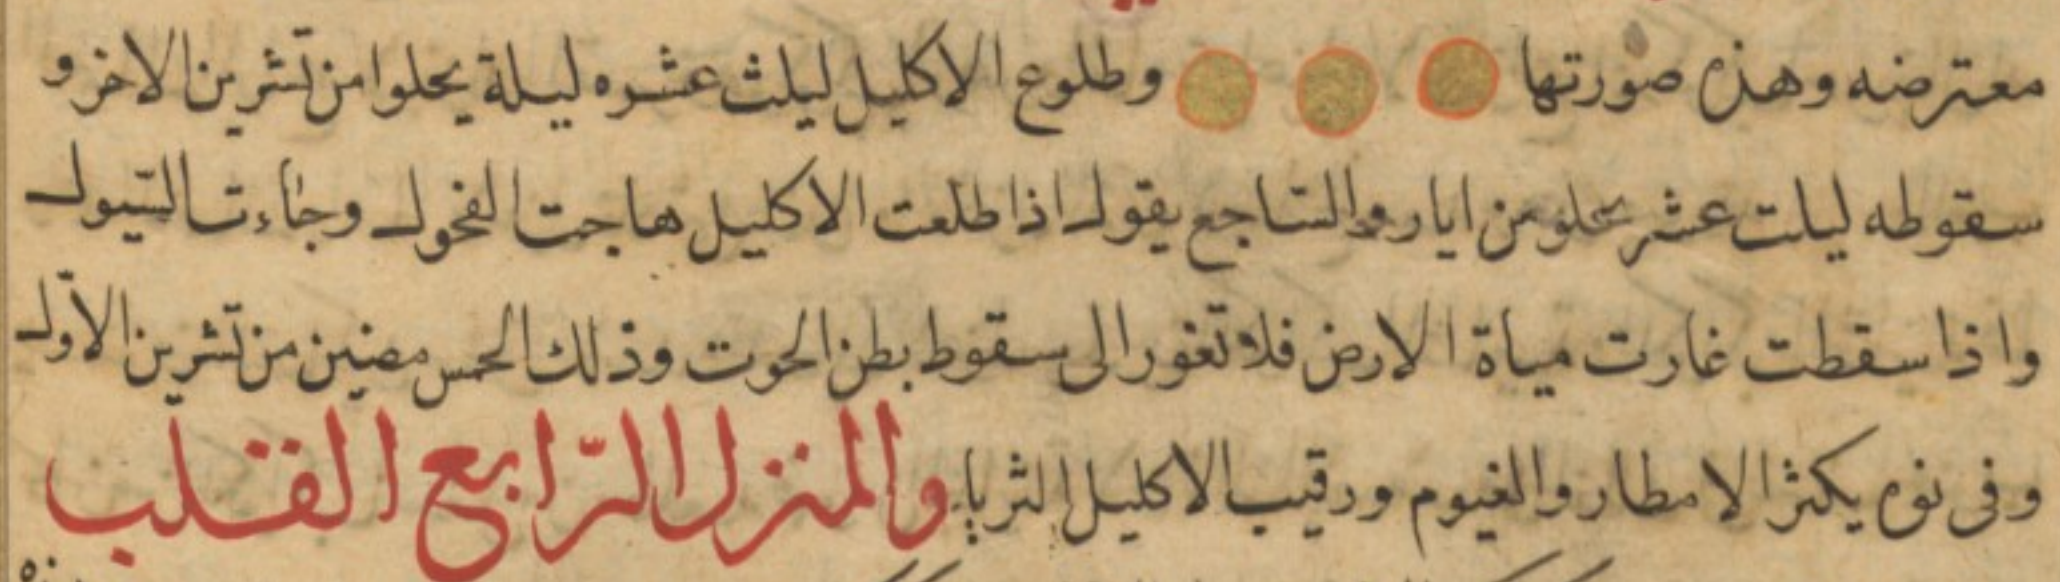 معترضه وهذه صورتها وطلوع الاكليل ليلث عشره ليلة يحلوا من تشرين الاخر و
سقوطه ليلت عشر يحلو من ايار والساجع يقول اذا طلعت الاكليل هاجت الفحول وجاءت السيول
واذا سقطت غارت مياة الارض فلا تغور الى سقوط بطن الحوت وذلك الخمس مضين من تشرين الاول
وفى نوه يكثر الامطار والغيوم ورقيب الاكليل الثريا والمنزل الرابع القلب